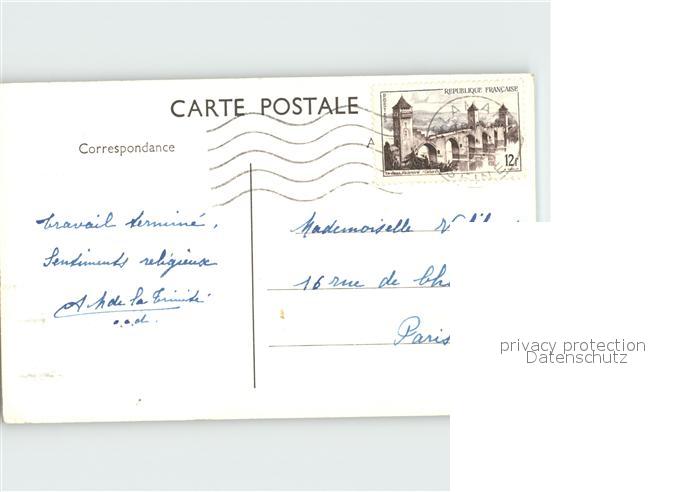 CARTE POSTALE
Correspondance
REPUBLIQUE FRANÇAISE
POSTES
12f
Travail terminé,
Sentiments religieux
de la Trinité
o.c.d.
Mademoiselle
16 rue de
Paris
privacy protection
Datenschutz